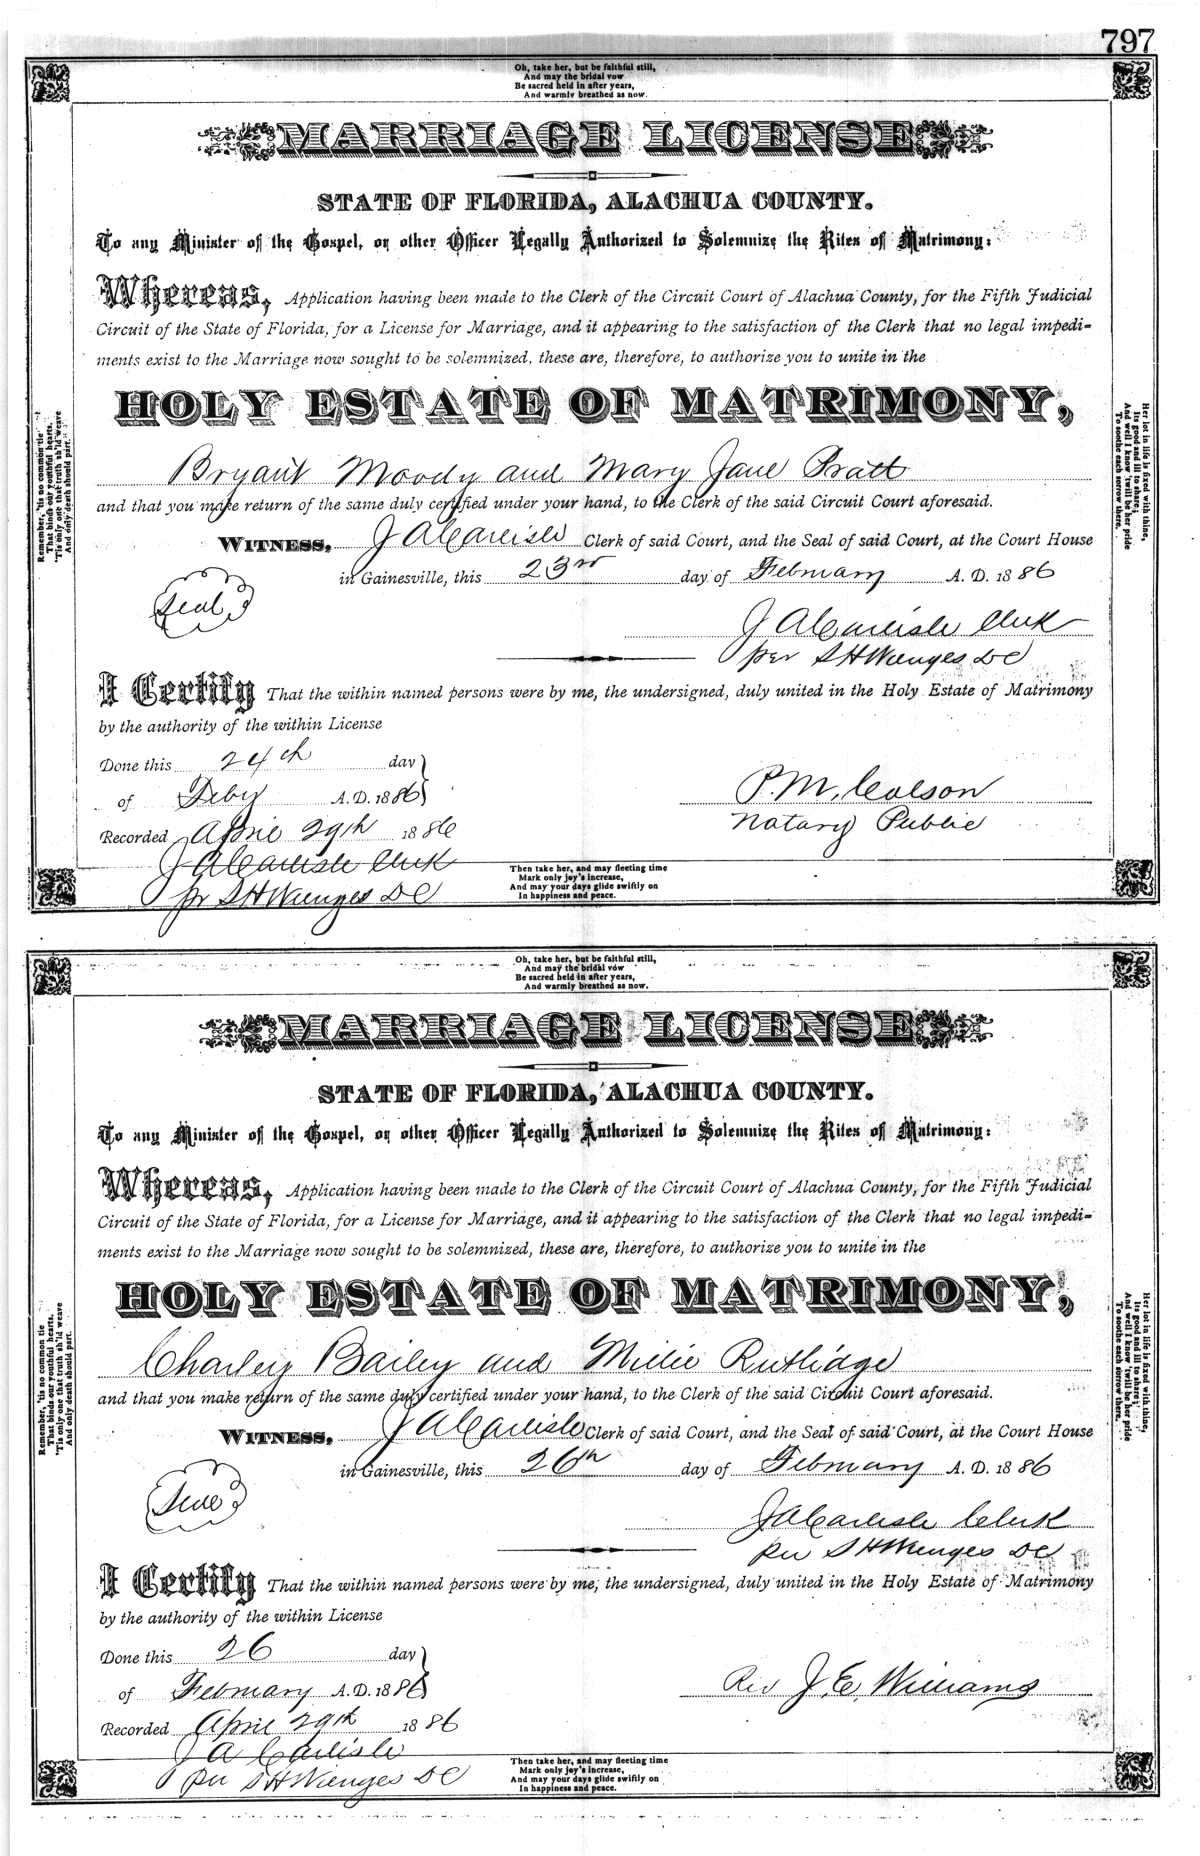 797
Oh, take her, but be faithful still,
And may the bridal vow
Be sacred held in after years,
And warmly breathed as now.
MARRIAGE LICENSE
STATE OF FLORIDA, ALACHUA COUNTY.
To any Minister of the Gospel, or other Officer Legally Authorized to Solemnize the Rites of Matrimony:
Whereas, Application having been made to the Clerk of the Circuit Court of Alachua County, for the Fifth Judicial
Circuit of the State of Florida, for a License for Marriage, and it appearing to the satisfaction of the Clerk that no legal impedi-
ments exist to the Marriage now sought to be solemnized, these are, therefore, to authorize you to unite in the
HOLY ESTATE OF MATRIMONY,
Bryant Moody and Mary Jane Pratt
and that you make return of the same duly certified under your hand, to the Clerk of the said Circuit Court aforesaid.
WITNESS, J A Carlisle Clerk of said Court, and the Seal of said Court, at the Court House
in Gainesville, this 23rd day of February A. D. 1886
Seal
J A Carlisle Clerk
per S H Wienges DC
I Certify That the within named persons were by me, the undersigned, duly united in the Holy Estate of Matrimony
by the authority of the within License
Done this 24th day
of Feby A. D. 1886
P. M. Colson
Notary Public
Recorded April 29th 1886
J A Carlisle Clerk
pr S H Wienges DC
Remember, 'tis no common tie
That binds our youthful hearts,
'Tis only one that truth sh'ld weave
And only death should part.
Her lot in life is fixed with thine,
Its good and ill to share;
And well I know 'twill be her pride
To soothe each sorrow there.
Then take her, and may fleeting time
Mark only joy's increase,
And may your days glide swiftly on
In happiness and peace.
Oh, take her, but be faithful still,
And may the bridal vow
Be sacred held in after years,
And warmly breathed as now.
MARRIAGE LICENSE
STATE OF FLORIDA, ALACHUA COUNTY.
To any Minister of the Gospel, or other Officer Legally Authorized to Solemnize the Rites of Matrimony:
Whereas, Application having been made to the Clerk of the Circuit Court of Alachua County, for the Fifth Judicial
Circuit of the State of Florida, for a License for Marriage, and it appearing to the satisfaction of the Clerk that no legal impedi-
ments exist to the Marriage now sought to be solemnized, these are, therefore, to authorize you to unite in the
HOLY ESTATE OF MATRIMONY,
Charley Bailey and Millie Rutlidge
and that you make return of the same duly certified under your hand, to the Clerk of the said Circuit Court aforesaid.
WITNESS, J A Carlisle Clerk of said Court, and the Seal of said Court, at the Court House
in Gainesville, this 26th day of February A. D. 1886
Seal
J A Carlisle Clerk
per S H Wienges DC
I Certify That the within named persons were by me, the undersigned, duly united in the Holy Estate of Matrimony
by the authority of the within License
Done this 26 day
of February A. D. 1886
Rev J. E. Williams
Recorded April 29th 1886
J A Carlisle
per S H Wienges DC
Remember, 'tis no common tie
That binds our youthful hearts,
'Tis only one that truth sh'ld weave
And only death should part.
Her lot in life is fixed with thine,
Its good and ill to share;
And well I know 'twill be her pride
To soothe each sorrow there.
Then take her, and may fleeting time
Mark only joy's increase,
And may your days glide swiftly on
In happiness and peace.